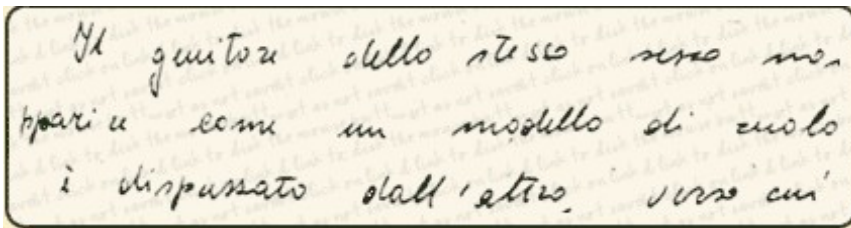 Il genitore dello stesso sesso no,
pparire come un modello di ruolo
è disprezzato dall'altro, verso cui